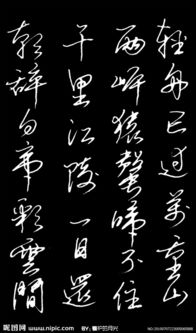 朝辭白帝彩雲間
千里江陵一日還
兩岸猿聲啼不住
輕舟已過萬重山
昵图网 www.nipic.com